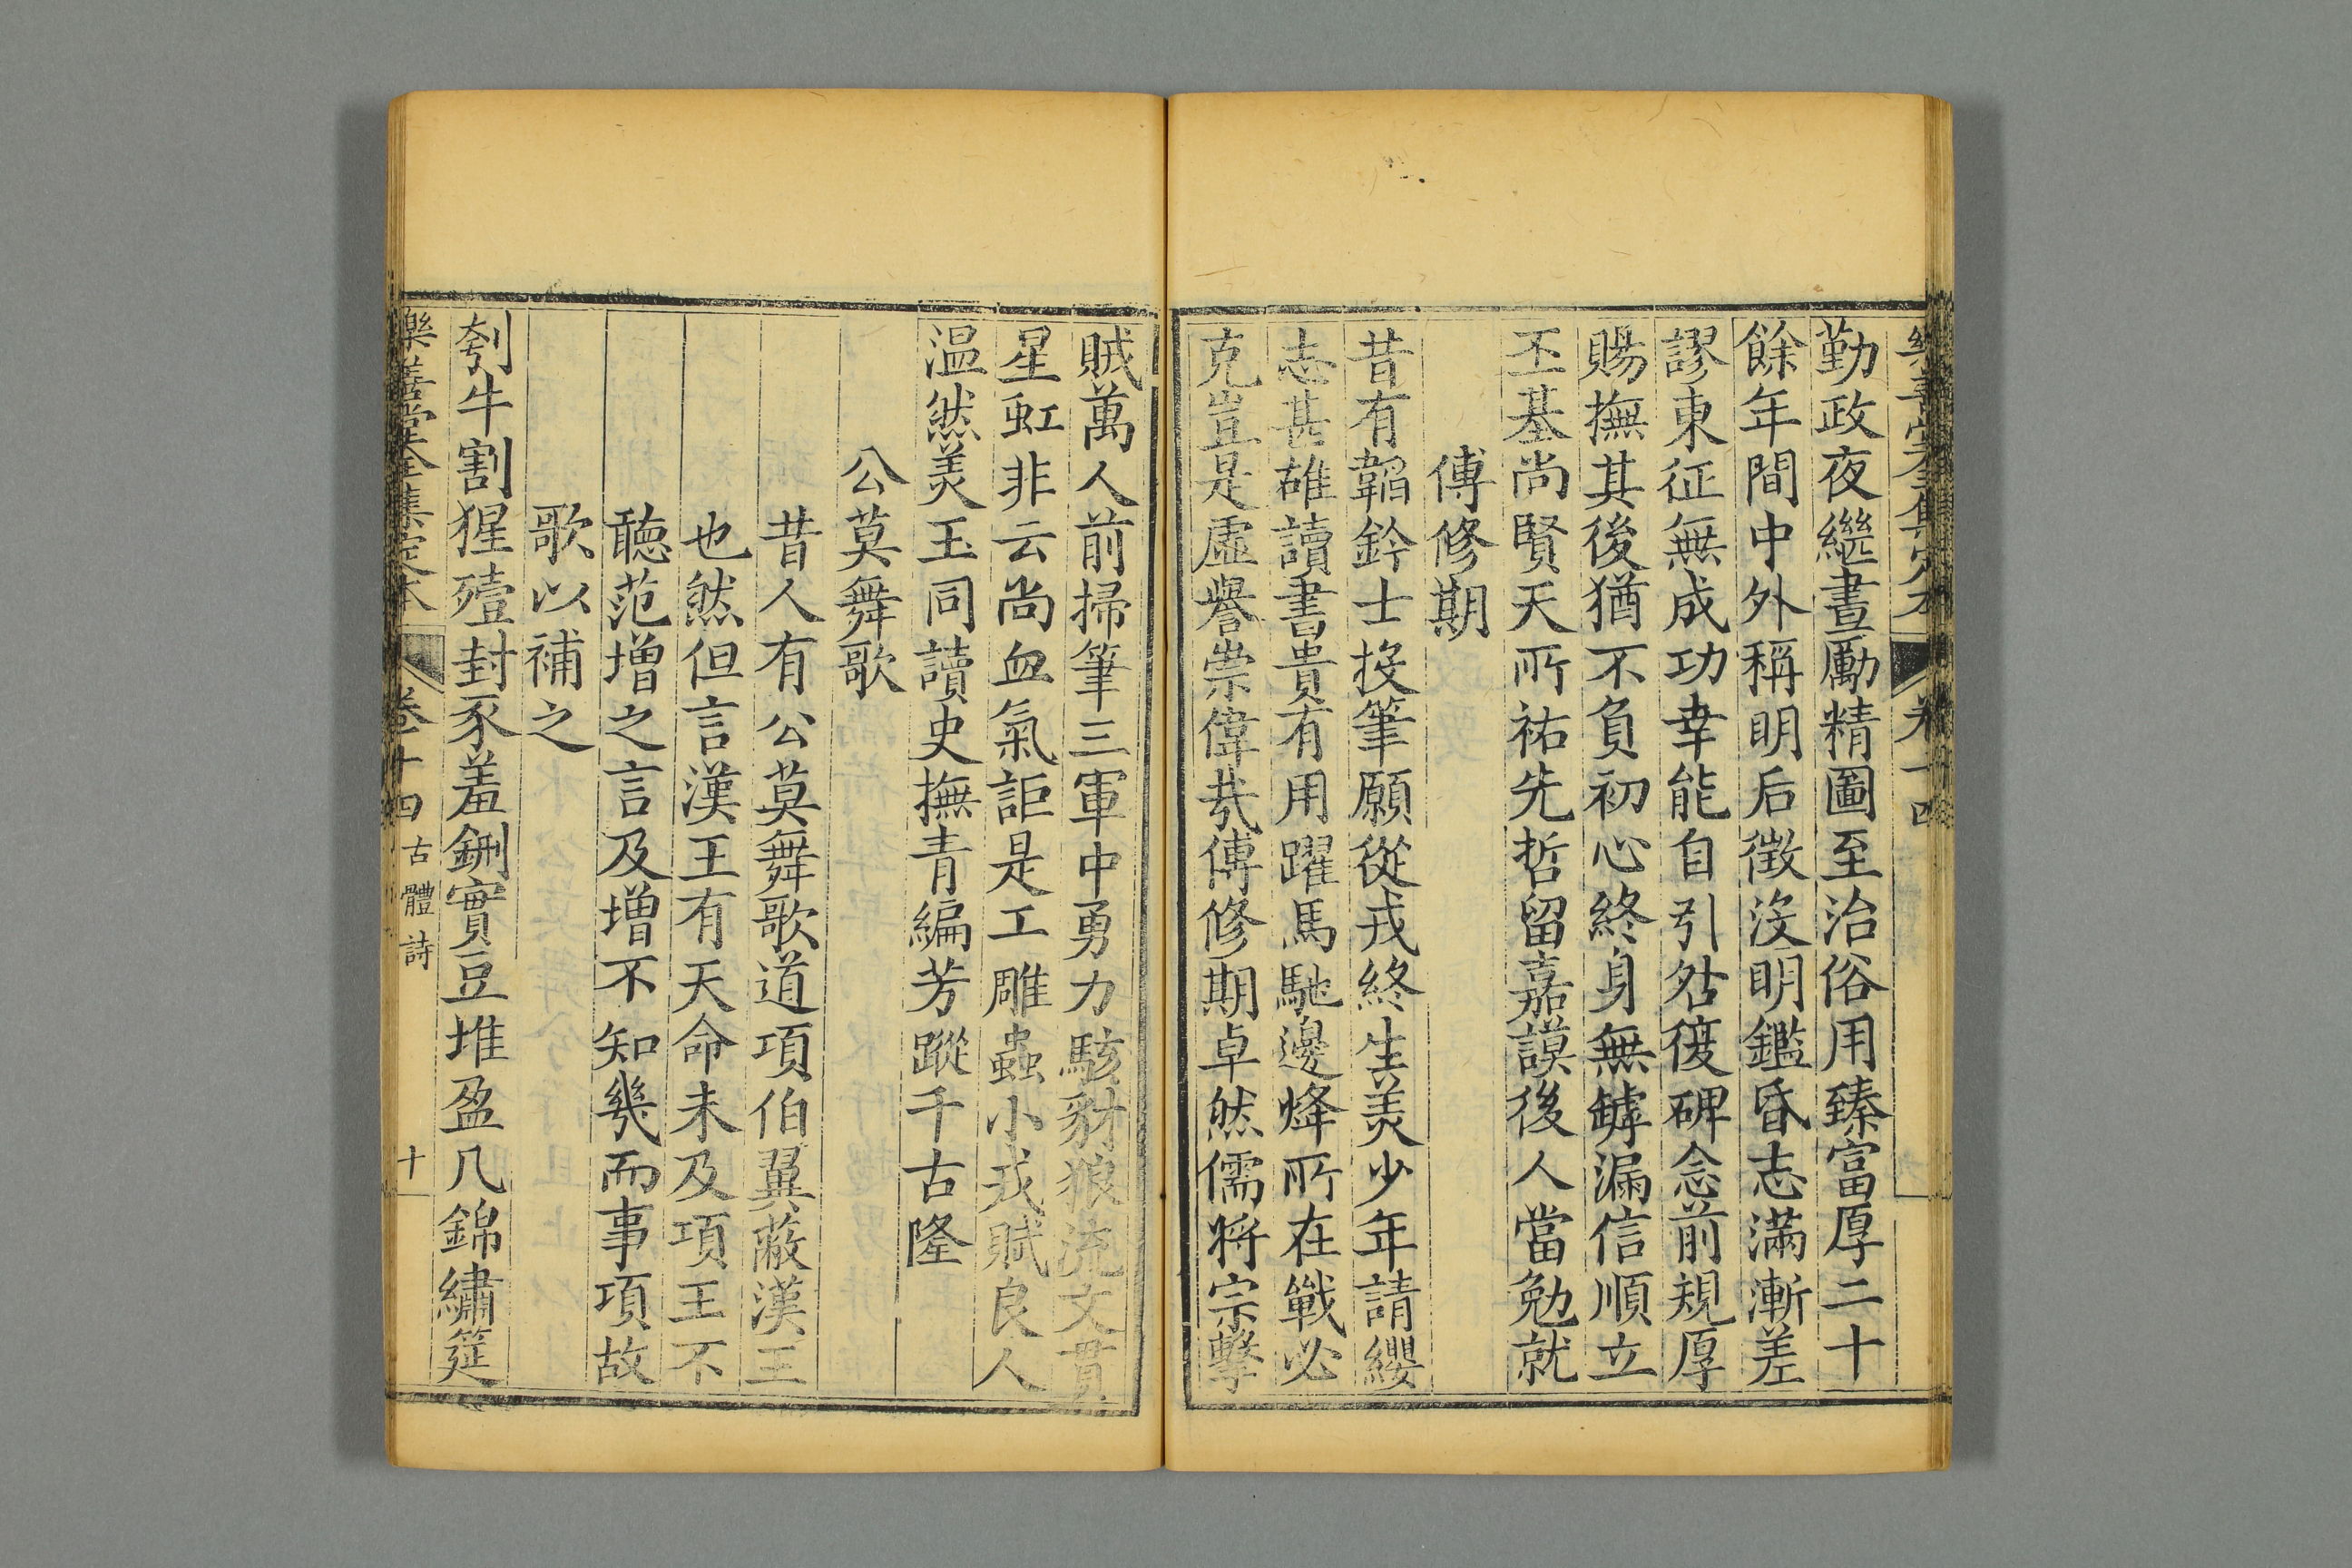 樂善堂全集定本 卷十四
勤政夜繼晝勵精圖至治俗用臻富厚二十
餘年間中外稱明后徵沒明鑑昏志滿漸差
謬東征無成功幸能自引咎復碑念前規厚
賜撫其後猶不負初心終身無罅漏信順立
丕基尚賢天所祐先哲留嘉謨後人當勉就
傅修期
昔有韜鈐士投筆願從戎終生美少年請纓
志甚雄讀書貴有用躍馬馳邊烽所在戰必
克豈是虛譽崇偉哉傅修期卓然儒將宗擊
賊萬人前掃筆三軍中勇力駭豺狼流文貫
星虹非云尚血氣詎是工雕蟲小戎賦良人
温然美玉同讀史撫青編芳蹤千古隆
公莫舞歌
昔人有公莫舞歌道項伯翼蔽漢王
也然但言漢王有天命未及項王不
聽范增之言及增不知幾而事項故
歌以補之
刳牛割猩殪封豕羞鉶實豆堆盈几錦繡筵
樂善堂全集定本 卷十四 古體詩 十